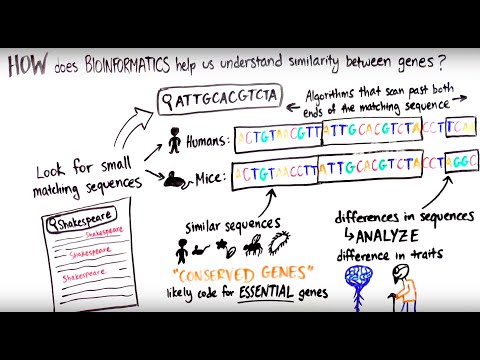 HOW does BIOINFORMATICS help us understand similarity between genes?
ATTGCACGTCTA
Algorithms that scan past both
ends of the matching sequence
Humans: ACTGTAACGTT ATTGCACGTCTA CCT TCAA
Look for small
matching sequences
Mice: ACTGTAACCTT ATTGCACGTCTA CCT AGGC
Shakespeare
Shakespeare
Shakespeare
Shakespeare
similar sequences
"CONSERVED GENES"
likely code for ESSENTIAL genes
differences in sequences
ANALYZE
difference in traits